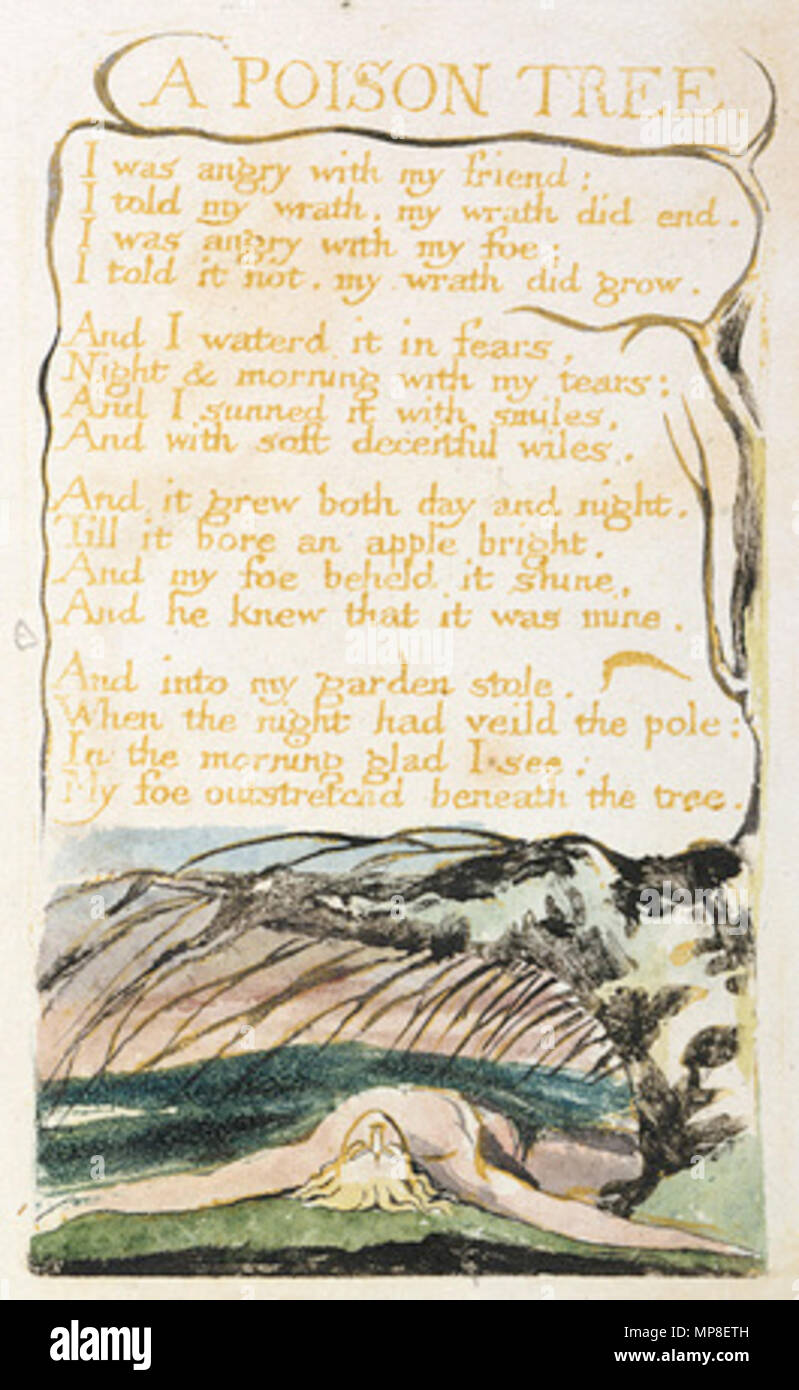 A POISON TREE
I was angry with my friend:
I told my wrath, my wrath did end.
I was angry with my foe:
I told it not, my wrath did grow.
And I waterd it in fears,
Night & morning with my tears:
And I sunned it with smiles,
And with soft deceitful wiles.
And it grew both day and night.
Till it bore an apple bright.
And my foe beheld it shine,
And he knew that it was mine.
And into my garden stole.
When the night had veild the pole:
In the morning glad I see;
My foe outstretchd beneath the tree.
alamy
alamy
alamy
a
a
a
alamy
Image ID: MP8ETH
www.alamy.com